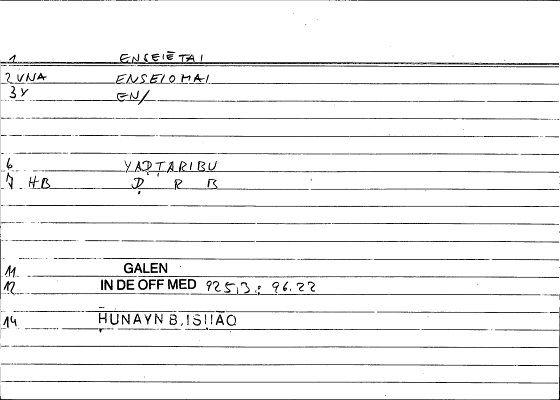 1 ENSEIETAI
2 VNA ENSEIOMAI
3 Y EN/
6 YAḌṬARIBU
7 HB Ḍ R B
11 GALEN
12 IN DE OFF MED 925,3 : 96.22
14 ḤUNAYN B. ISḤĀQ